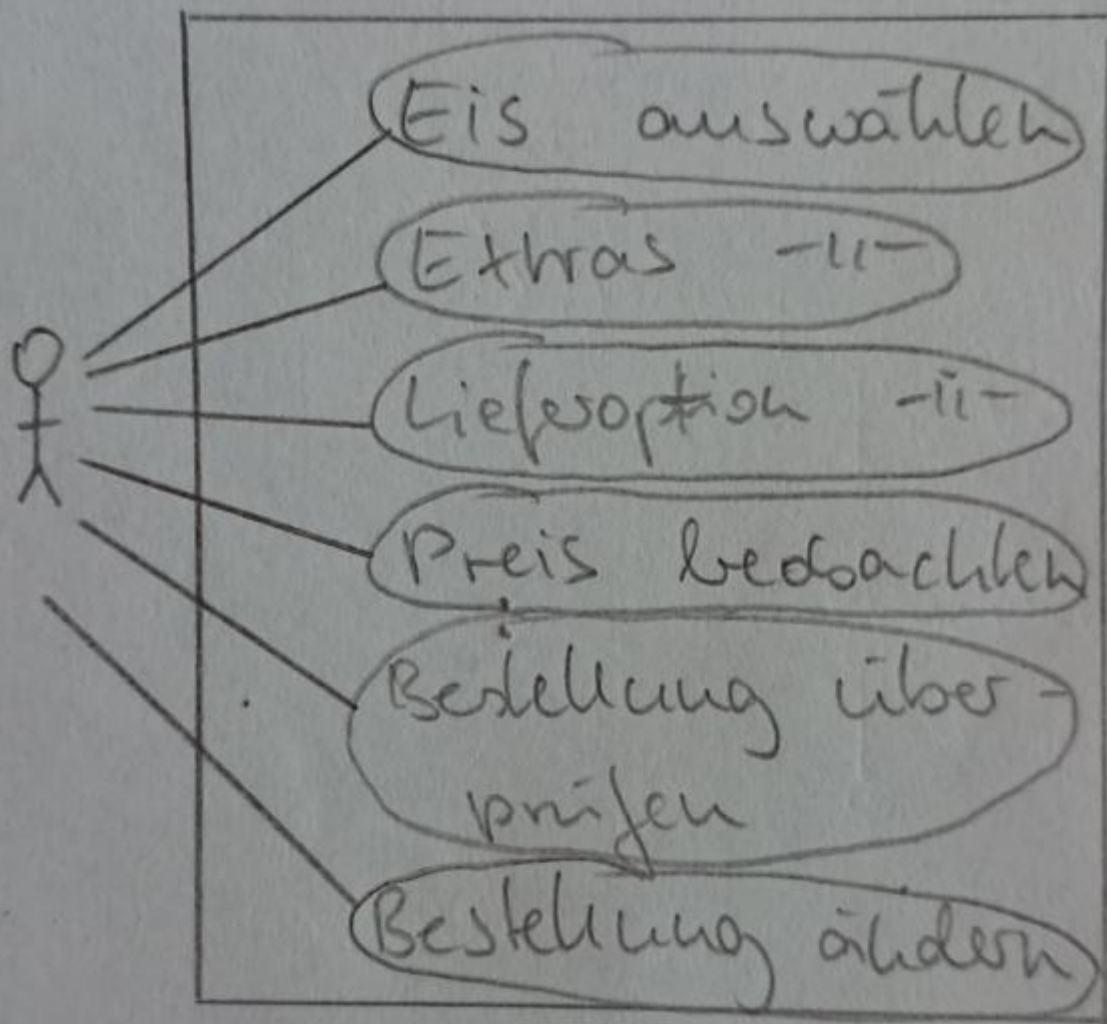 Eis auswählen
Extras -11-
Lieferoption -11-
Preis beobachten
Bestellung über-
prüfen
Bestellung ändern